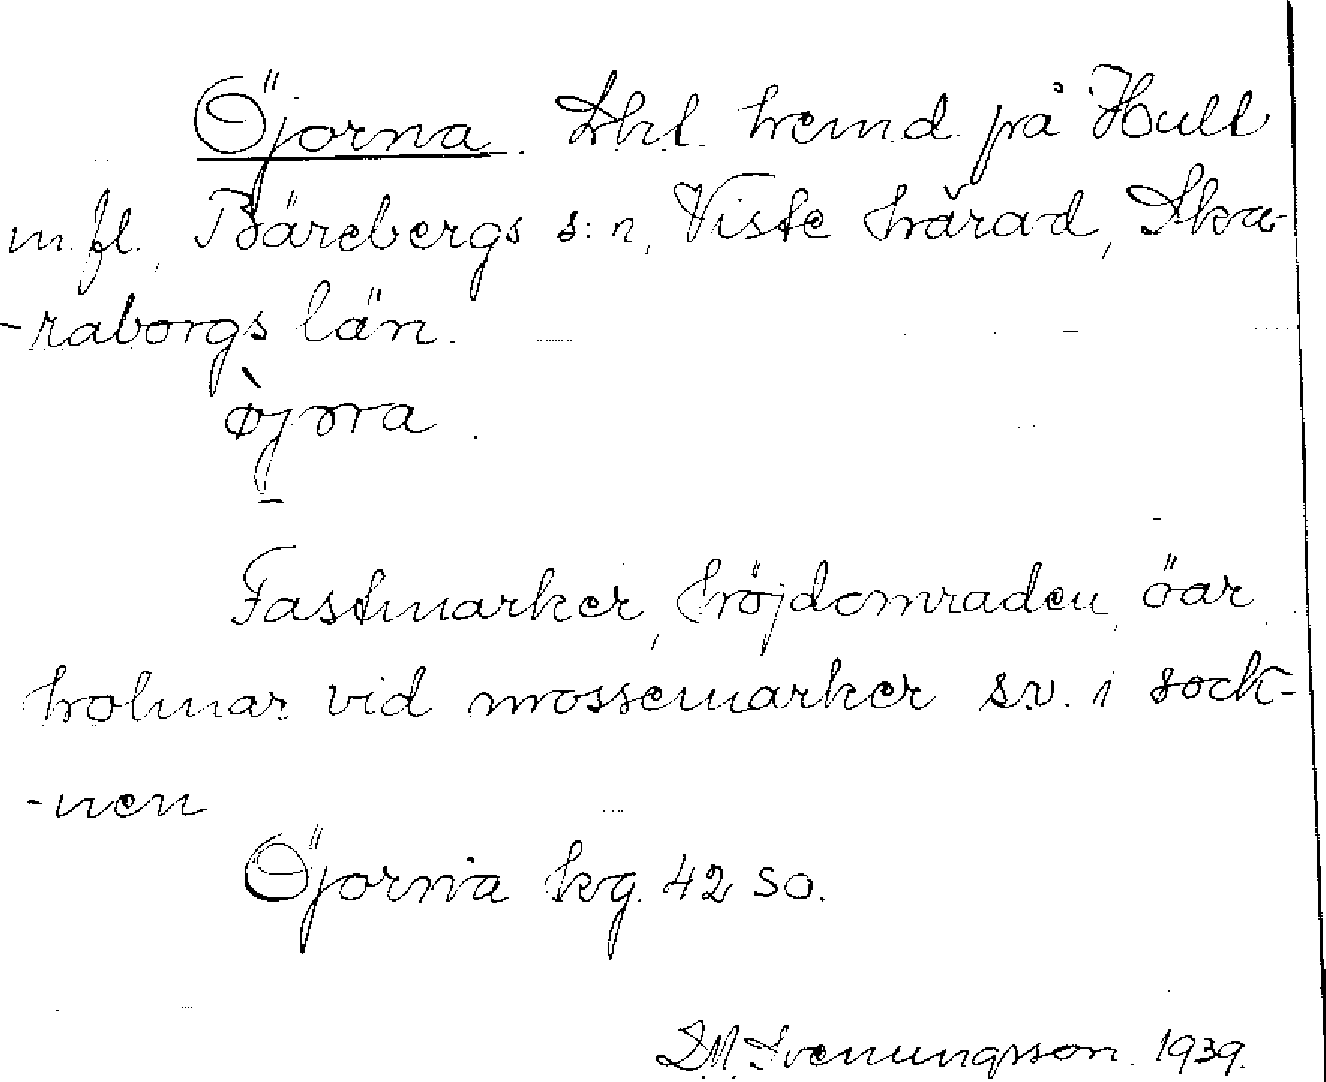 Öjorna. Skl. hemd på Hult
m.fl., Bärebergs s:n, Viste härad, Ska-
-raborgs län.
Fastmarker, höjdområden, öar
holmar vid mossemarker s.v. i sock-
-nen
Öjorna kg. 42 so.
Svenungsson. 1939.